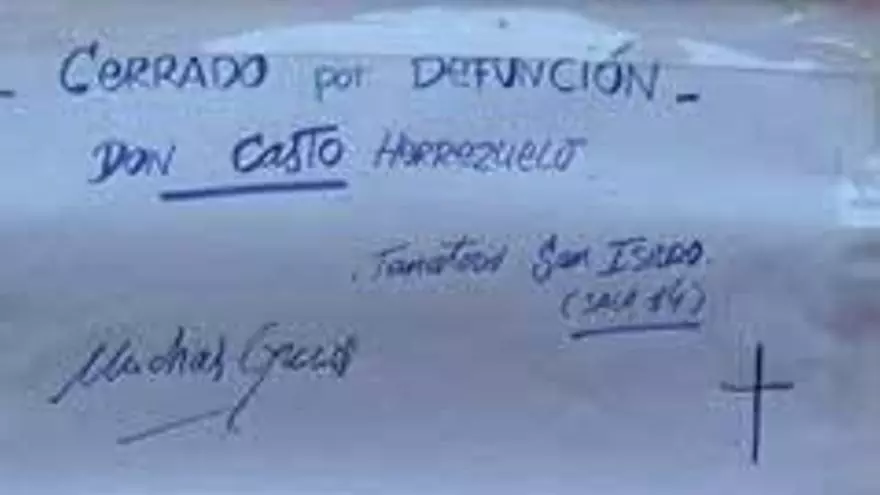 - CERRADO por DEFUNCIÓN -
DON CASTO HERREZUELO
. Tanatorio San ISIDRO.
(SALA 14)
Muchas Gracias